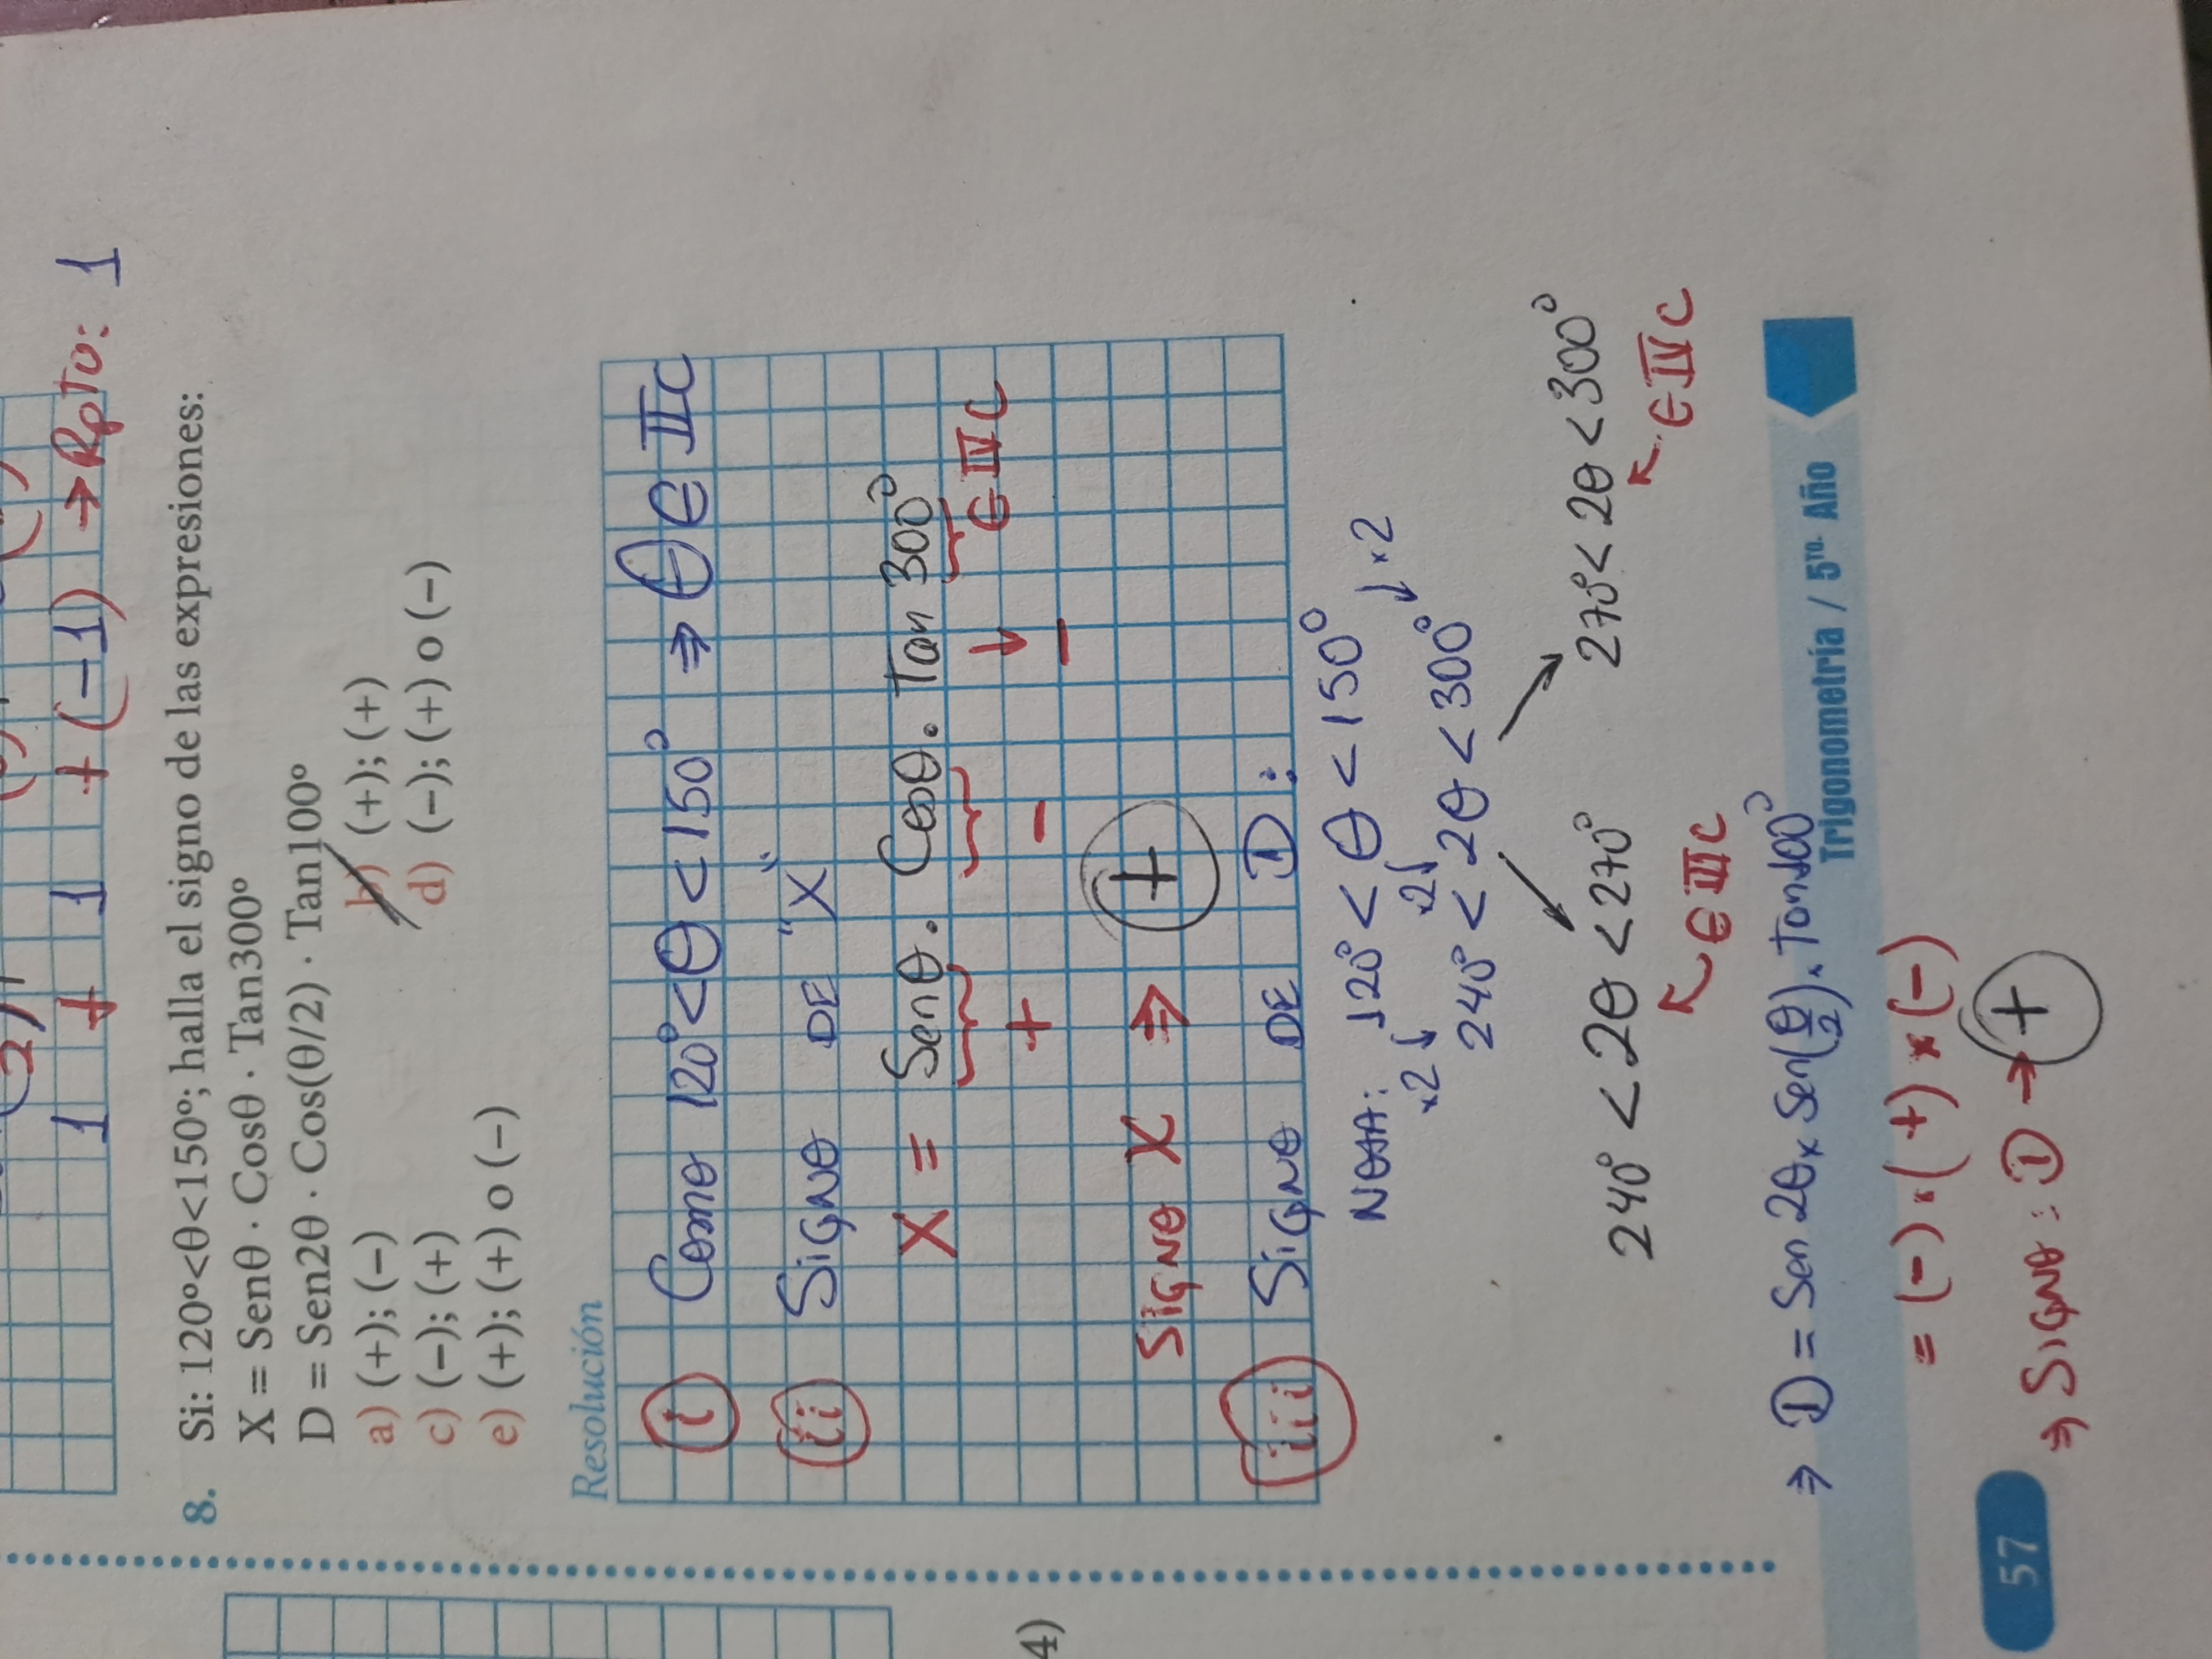 1 + 1 + (-1) → RpTO: 1
8. Si: 120º<θ<150º; halla el signo de las expresiones:
X = Senθ · Cosθ · Tan300º
D = Sen2θ · Cos(θ/2) · Tan100º
a) (+); (–)
b) (+); (+)
c) (–); (+)
d) (–); (+) o (–)
e) (+); (+) o (–)
Resolución
i Como 120° < θ < 150° ⇒ θ ∈ IIC
ii SIGNO DE "X"
X = Senθ. Cosθ. Tan 300°
∈ IVC
+ - ↓ -
SIGNO X ⇒ +
iii SIGNO DE D:
NOTA: 120° < θ < 150°
×2↓ ×2↓ ↓×2
240° < 2θ < 300°
240° < 2θ < 270° 270° < 2θ < 300°
∈ IIIC ∈ IVC
4)
⇒ D = Sen 2θ × Sen(θ/2). Tan100°
Trigonometría / 5TO. Año
= (-) · (+) × (-)
57
⇒ SIGNO : D → +